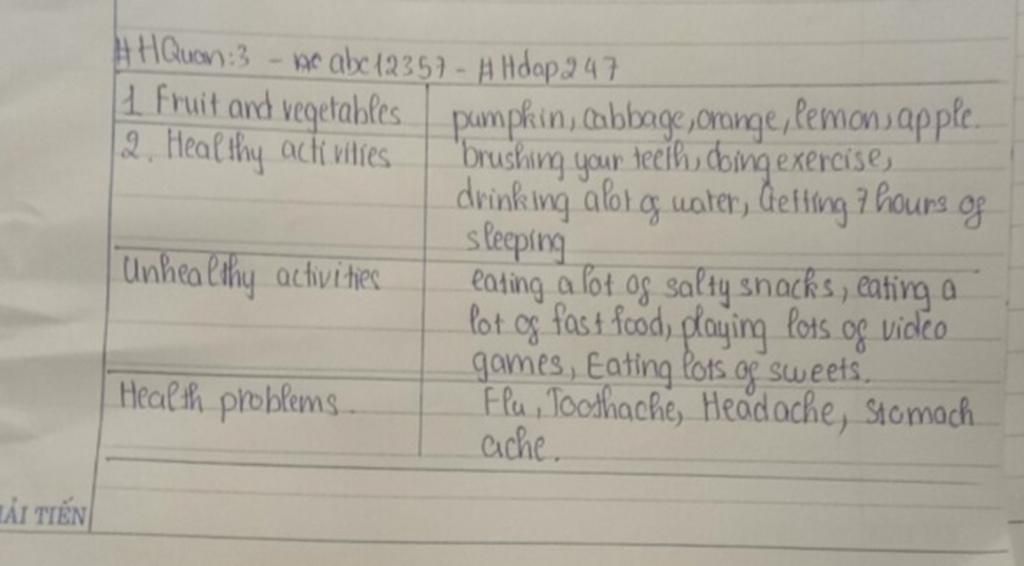 #HQuan:3 - abc12357 - #Hdap247
1 Fruit and vegetables pumpkin, cabbage, orange, lemon, apple.
2. Healthy activities brushing your teeth, doing exercise,
drinking a lot of water, Getting 7 hours of
sleeping
Unhealthy activities eating a lot of salty snacks, eating a
lot of fast food, playing lots of video
games, Eating lots of sweets.
Health problems. Flu, Toothache, Headache, Stomach
ache.
ẢI TIẾN